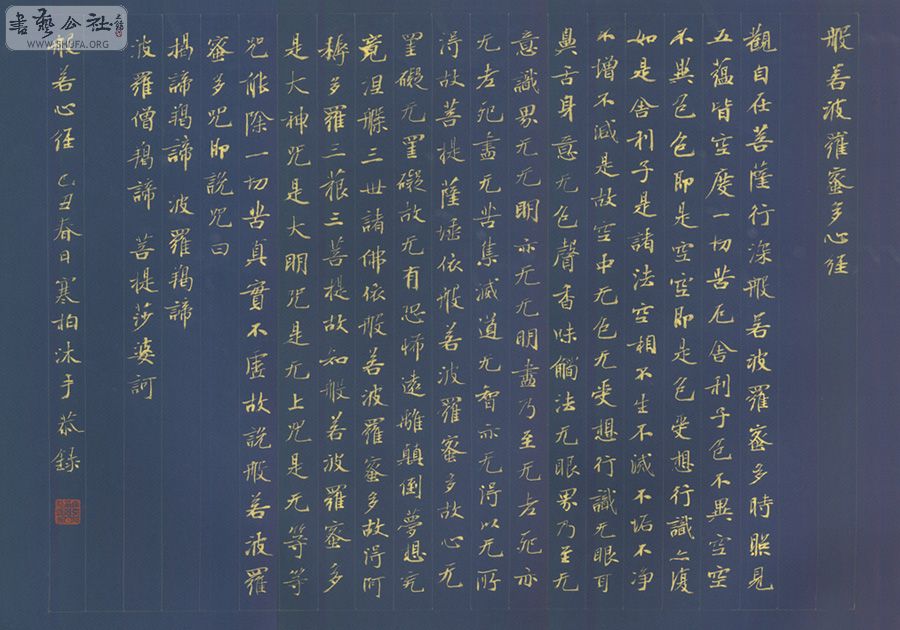 書藝公社
WWW.SHUFA.ORG
般若波羅蜜多心经
觀自在菩薩行深般若波羅蜜多時照見
五蘊皆空度一切苦厄舍利子色不異空空
不異色色即是空空即是色受想行識亦復
如是舍利子是諸法空相不生不滅不垢不净
不增不減是故空中无色无受想行識无眼耳
鼻舌身意无色聲香味觸法无眼界乃至无
意識界无无明亦无无明盡乃至无老死亦
无老死盡无苦集滅道无智亦无得以无所
得故菩提薩埵依般若波羅蜜多故心无
罣礙无罣礙故无有恐怖遠離顛倒夢想究
竟涅槃三世諸佛依般若波羅蜜多故得阿
耨多羅三藐三菩提故知般若波羅蜜多
是大神咒是大明咒是无上咒是无等等
咒能除一切苦真實不虛故說般若波羅
蜜多咒即說咒曰
揭諦羯諦 波羅羯諦
波羅僧羯諦 菩提莎婆訶
般若心经 己丑春日寒柏沐手恭錄